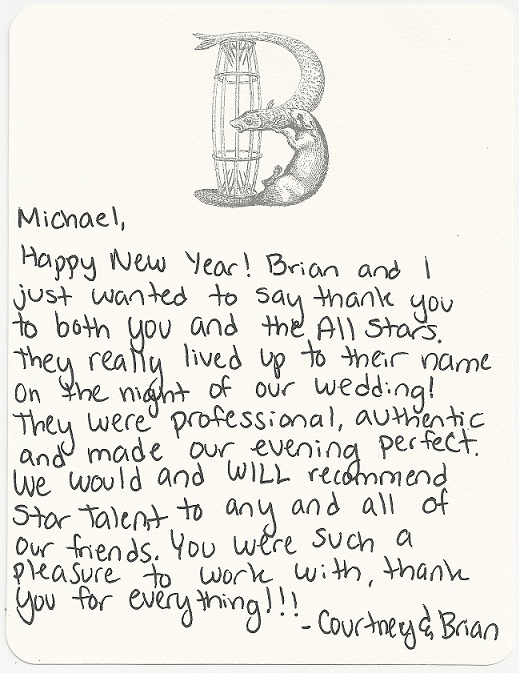 B
Michael,
Happy New Year! Brian and I
just wanted to say thank you
to both you and the All Stars.
They really lived up to their name
on the night of our wedding!
They were professional, authentic
and made our evening perfect.
We would and WILL recommend
Star Talent to any and all of
our friends. You were such a
pleasure to work with, thank
you for everything!!!
- Courtney & Brian